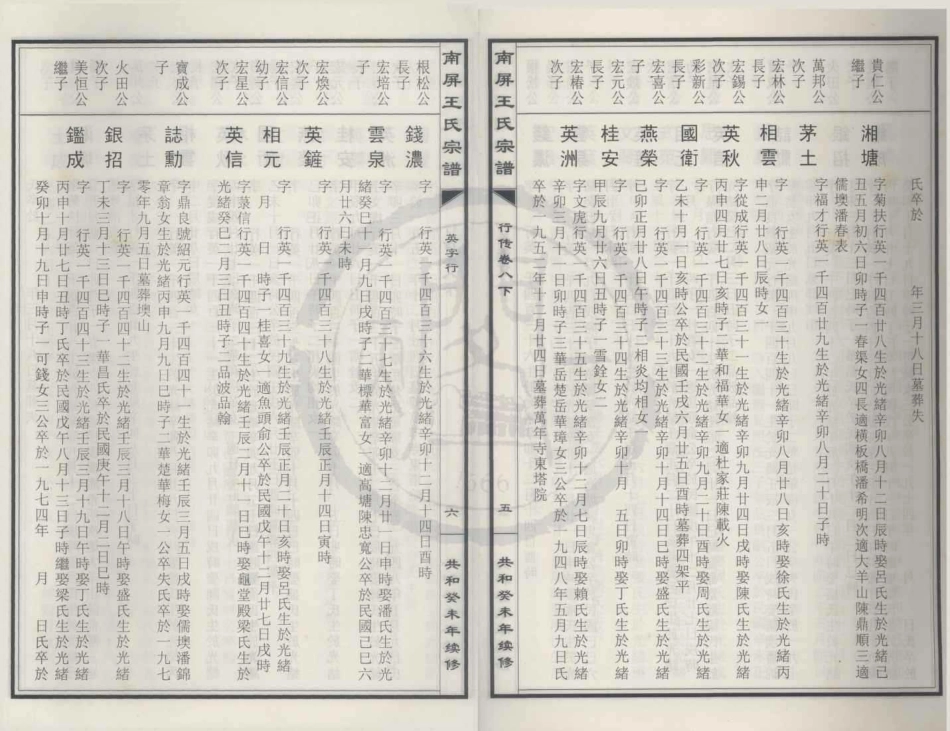 氏卒於　　年三月十八日墓葬失
貴仁公
繼子
湘塘
字菊扶行英一千四百廿八生於光緒辛卯八月十二日辰時娶呂氏生於光緒己
丑五月初六日卯時子一春渠女四長適橫板橋潘希明次適大羊山陳鼎順三適
儒墺潘春表
萬邦公
次子
茅土
字福才行英一千四百廿九生於光緒辛卯八月二十日子時
宏林公
長子
相雲
字　　行英一千四百三十生於光緒辛卯八月廿八日亥時娶徐氏生於光緒丙
申二月廿八日辰時女一
宏錫公
次子
英秋
字從成行英一千四百三十一生於光緒辛卯九月廿四日戌時娶陳氏生於光緒
丙申四月廿七日亥時子二華和福華女一適杜家莊陳載火
彩新公
長子
國衛
字　　行英一千四百三十二生於光緒辛卯九月二十日酉時娶周氏生於光緒
乙未十月一日亥時公卒於民國壬戌六月廿五日酉時墓葬四架平
宏喜公
子
燕榮
字　　行英一千四百三十三生於光緒辛卯十月十四日巳時娶盛氏生於光緒
己卯正月廿八日午時子二相炎均相女一
宏元公
長子
桂安
字　　行英一千四百三十四生於光緒辛卯十月　五日卯時娶丁氏生於光緒
甲辰九月廿六日丑時子一雪銓女二
宏椿公
次子
英洲
字文虎行英一千四百三十五生於光緒辛卯十二月七日辰時娶賴氏生於光緒
辛卯三月十一日卯時子三華岳楚岳華璋女三公卒於一九四八年五月九日氏
卒於一九五二年十二月廿四日墓葬萬年寺東塔院
南屏王氏宗譜
行传卷八下
五
共和癸未年续修
南屏王氏宗譜
英字行
六
共和癸未年续修
根松公
長子
錢濃
字　　行英一千四百三十六生於光緒辛卯十二月十四日酉時
宏培公
子
雲泉
字　　行英一千四百三十七生於光緒辛卯十二月廿一日申時娶潘氏生於光
緒癸巳十一月九日戌時子二華標華富女一適高塘陳忠寬公卒於民國己巳六
月廿六日未時
宏煥公
次子
英鏟
字　　行英一千四百三十八生於光緒壬辰正月十四日寅時
宏信公
幼子
相元
字　　行英一千四百三十九生於光緒壬辰正月二十日亥時娶呂氏生於光緒
　月　　日　時子一桂喜女一適魚頭俞公卒於民國戊午十二月廿七日戌時
宏星公
次子
英信
字菉信行英一千四百四十生於光緒壬辰二月十一日巳時娶龜堂殿梁氏生於
光緒癸巳二月三日丑時子二品波品翰
寶成公
子
誌勳
字鼎良號紹元行英一千四百四十一生於光緒壬辰三月五日戌時娶儒墺潘錦
章翁女生於光緒丙申九月九日巳時子二華楚華梅女一公卒失氏卒於一九七
零年九月五日墓葬墺山
火田公
次子
銀招
字　　行英一千四百四十二生於光緒壬辰三月十八日午時娶盛氏生於光緒
丁未三月十三日巳時子一華昌氏卒於民國庚午十二月二日巳時
美恒公
繼子
鑑成
字　　行英一千四百四十三生於光緒壬辰三月十九日午時娶丁氏生於光緒
丙申十月廿七日丑時丁氏卒於民國戊午八月十三日子時繼娶梁氏生於光緒
癸卯十月十九日申時子一可錢女三公卒於一九七四年　　月　　日氏卒於